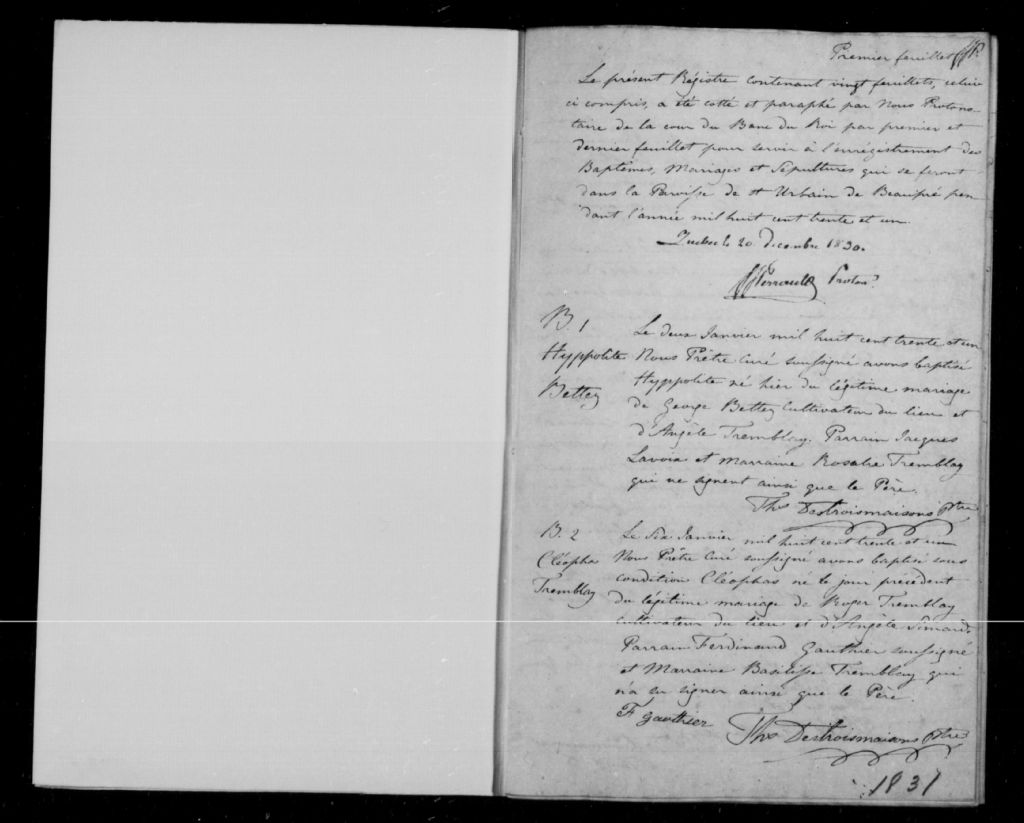 Premier feuillet
Le présent Régistre contenant vingt feuillets, celui
ci compris, a été cotté et paraphé par Nous Protono-
taire de la cour du Banc du Roi par premier et
dernier feuillet pour servir à l'enrégistrement des
Baptêmes, Mariages et Sépultures qui se feront
dans la Paroisse de St Urbain de Beaupré pen
dant l'année mil huit cent trente et un.
Quebec le 20 decembre 1830.
Perrault Proton.
B. 1
Hyppolite
Bettez
Le deux Janvier mil huit cent trente et un
Nous Prêtre Curé soussigné avons baptisé
Hyppolite né hier du légitime mariage
de George Bettez Cultivateur du lieu et
d'Angèle Tremblay. Parrain Jacques
Lavoix et Marraine Rosalie Tremblay
qui ne signent ainsi que le Père.
Ths Destroismaisons Ptre
B. 2
Cléophas
Tremblay
Le six Janvier mil huit cent trente et un
Nous Prêtre Curé soussigné avons baptisé sous
condition Cléophas né le jour précédent
du légitime mariage de Roger Tremblay
cultivateur du lieu et d'Angèle Simard.
Parrain Ferdinand Gauthier soussigné
et Marraine Basilisse Tremblay qui
n'a su signer ainsi que le Père.
F Gauthier
Ths Destroismaisons Ptre
1831